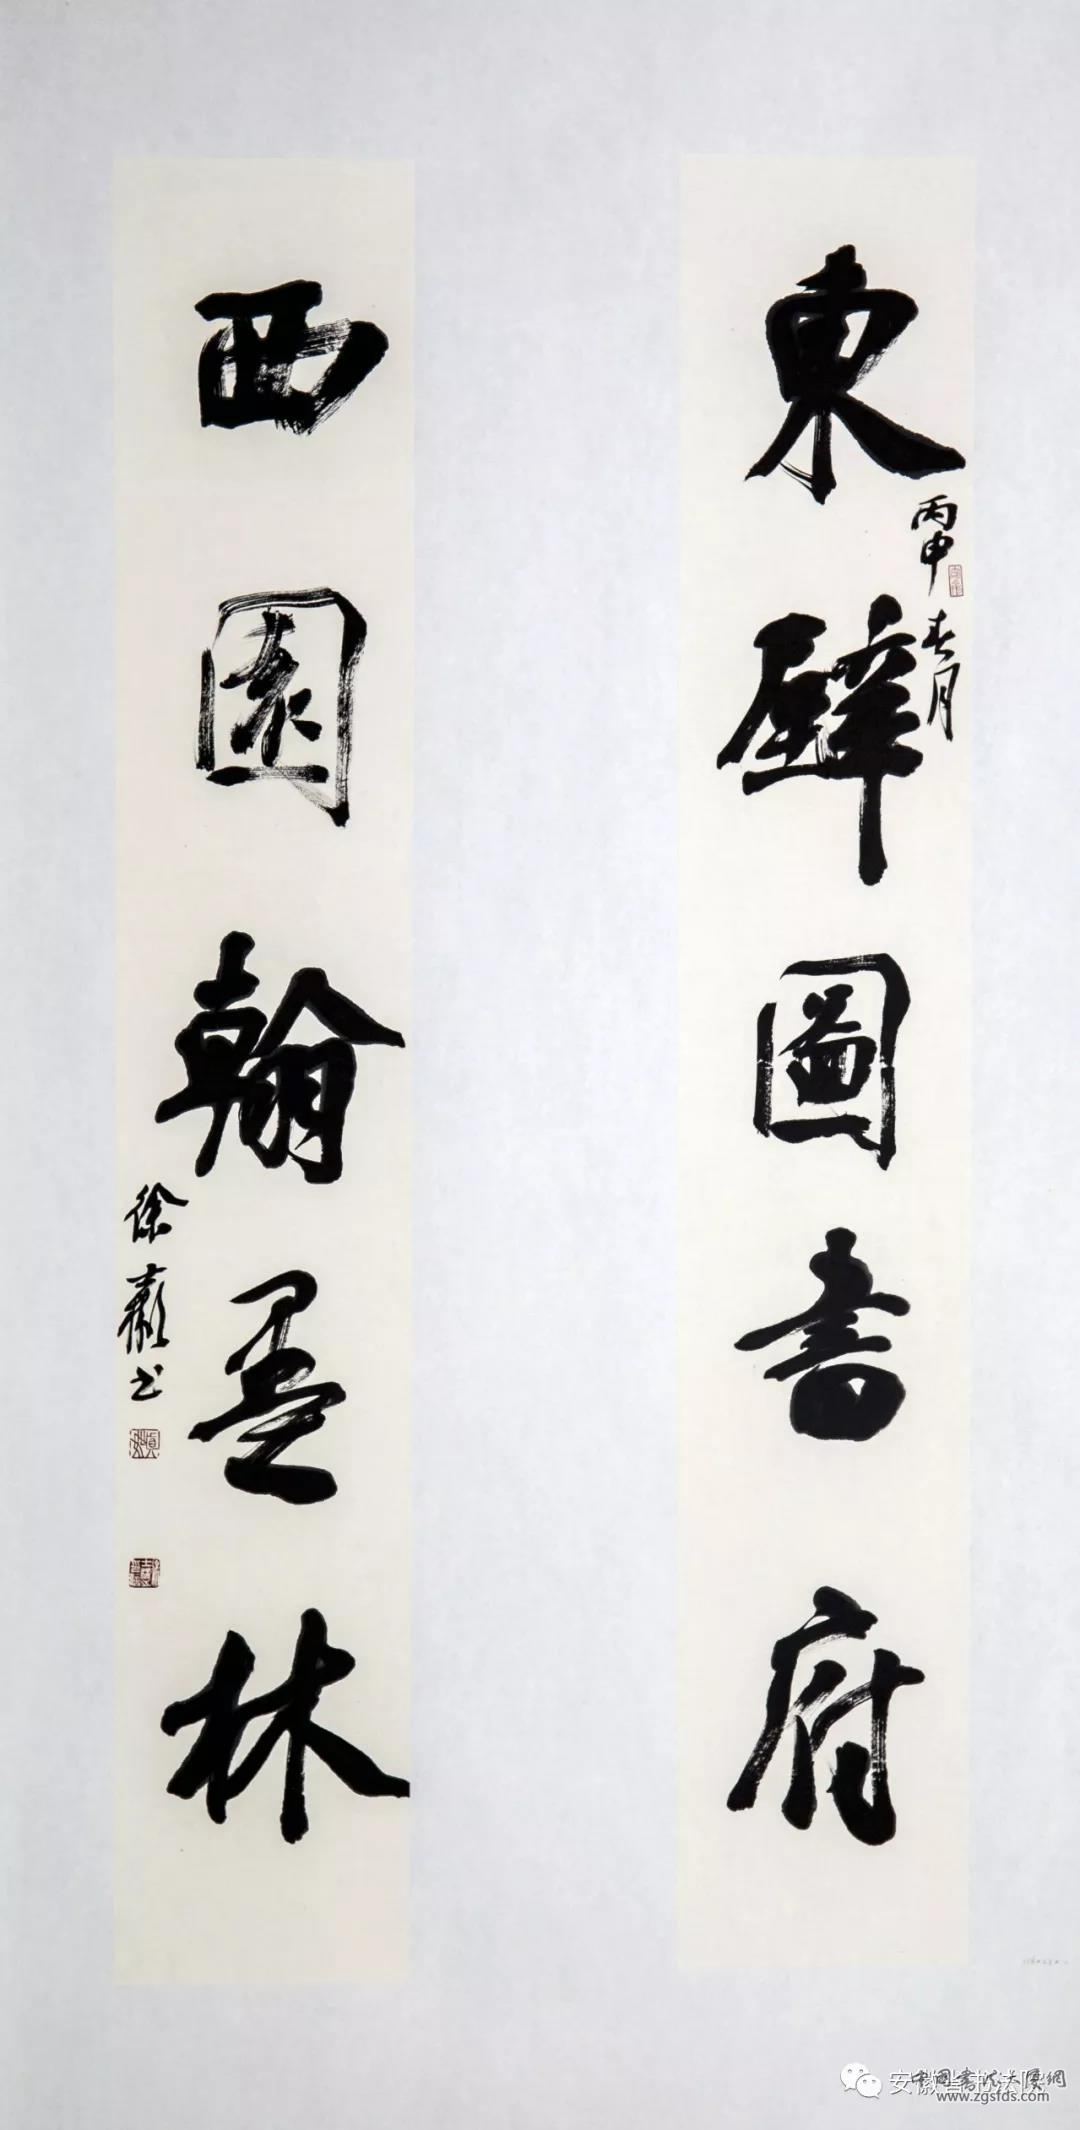 東壁圖書府
丙申春月
西園翰墨林
徐
書
安徽省书法院
中国书法大厦網
www.zgsfds.com